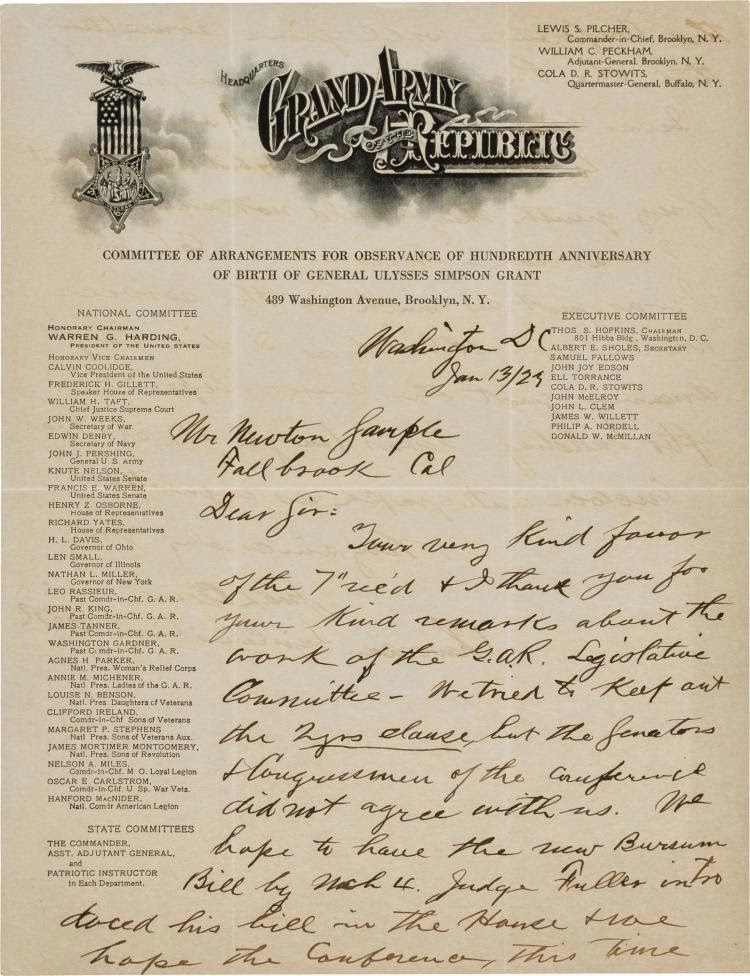 LEWIS S. PILCHER,
Commander-in-Chief, Brooklyn, N. Y.
WILLIAM C. PECKHAM,
Adjutant-General. Brooklyn, N. Y.
COLA D. R. STOWITS,
Quartermaster-General, Buffalo, N. Y.
HEADQUARTERS
GRAND ARMY
OF THE
REPUBLIC
COMMITTEE OF ARRANGEMENTS FOR OBSERVANCE OF HUNDREDTH ANNIVERSARY
OF BIRTH OF GENERAL ULYSSES SIMPSON GRANT
489 Washington Avenue, Brooklyn, N. Y.
NATIONAL COMMITTEE
HONORARY CHAIRMAN
WARREN G. HARDING,
PRESIDENT OF THE UNITED STATES
HONORARY VICE CHAIRMEN
CALVIN COOLIDGE,
Vice President of the United States
FREDERICK H. GILLETT,
Speaker House of Representatives
WILLIAM H. TAFT,
Chief Justice Supreme Court
JOHN W. WEEKS,
Secretary of War
EDWIN DENBY,
Secretary of Navy
JOHN J. PERSHING,
General U. S. Army
KNUTE NELSON,
United States Senate
FRANCIS E. WARREN,
United States Senate
HENRY Z. OSBORNE,
House of Representatives
RICHARD YATES,
House of Representatives
H. L. DAVIS,
Governor of Ohio
LEN SMALL,
Governor of Illinois
NATHAN L. MILLER,
Governor of New York
LEO RASSIEUR,
Past Comdr-in-Chf. G. A. R.
JOHN R. KING,
Past Comdr-in-Chf. G. A. R.
JAMES TANNER,
Past Comdr-in-Chf. G. A. R.
WASHINGTON GARDNER,
Past Comdr-in-Chf. G. A. R.
AGNES H. PARKER,
Natl. Pres. Woman's Relief Corps
ANNIE M. MICHENER,
Natl. Pres. Ladies of the G. A. R.
LOUISE N. BENSON,
Natl. Pres Daughters of Veterans
CLIFFORD IRELAND,
Comdr-in-Chf Sons of Veterans
MARGARET P. STEPHENS
Natl. Pres. Sons of Veterans Aux.
JAMES MORTIMER MONTGOMERY,
Natl. Pres. Sons of Revolution
NELSON A. MILES,
Comdr-in-Chf. M O. Loyal Legion
OSCAR E. CARLSTROM,
Comdr-in-Chf. U Sp. War Vets.
HANFORD MacNIDER,
Natl. Comdr American Legion
STATE COMMITTEES
THE COMMANDER,
ASST. ADJUTANT GENERAL,
and
PATRIOTIC INSTRUCTOR
in Each Department.
EXECUTIVE COMMITTEE
THOS S. HOPKINS, CHAIRMAN
801 Hibbs Bldg., Washington, D. C.
ALBERT E. SHOLES, SECRETARY
SAMUEL FALLOWS
JOHN JOY EDSON
ELL TORRANCE
COLA D. R. STOWITS
JOHN McELROY
JOHN L. CLEM
JAMES W. WILLETT
PHILIP A. NORDELL
DONALD W. McMILLAN
Washington D C
Jan 13/23
Mr Newton Sample
Fallbrook Cal
Dear Sir:
Your very kind favor
of the 7" rec'd & I thank you for
your kind remarks about the
work of the G.A.R. Legislative
Committee - We tried to keep out
the 2 yrs clause, but the Senators
& Congressmen of the conference
did not agree with us. We
hope to have the new Bursum
Bill by Mch 4. Judge Fuller intro
duced his bill in the House & we
hope the Conference, this time